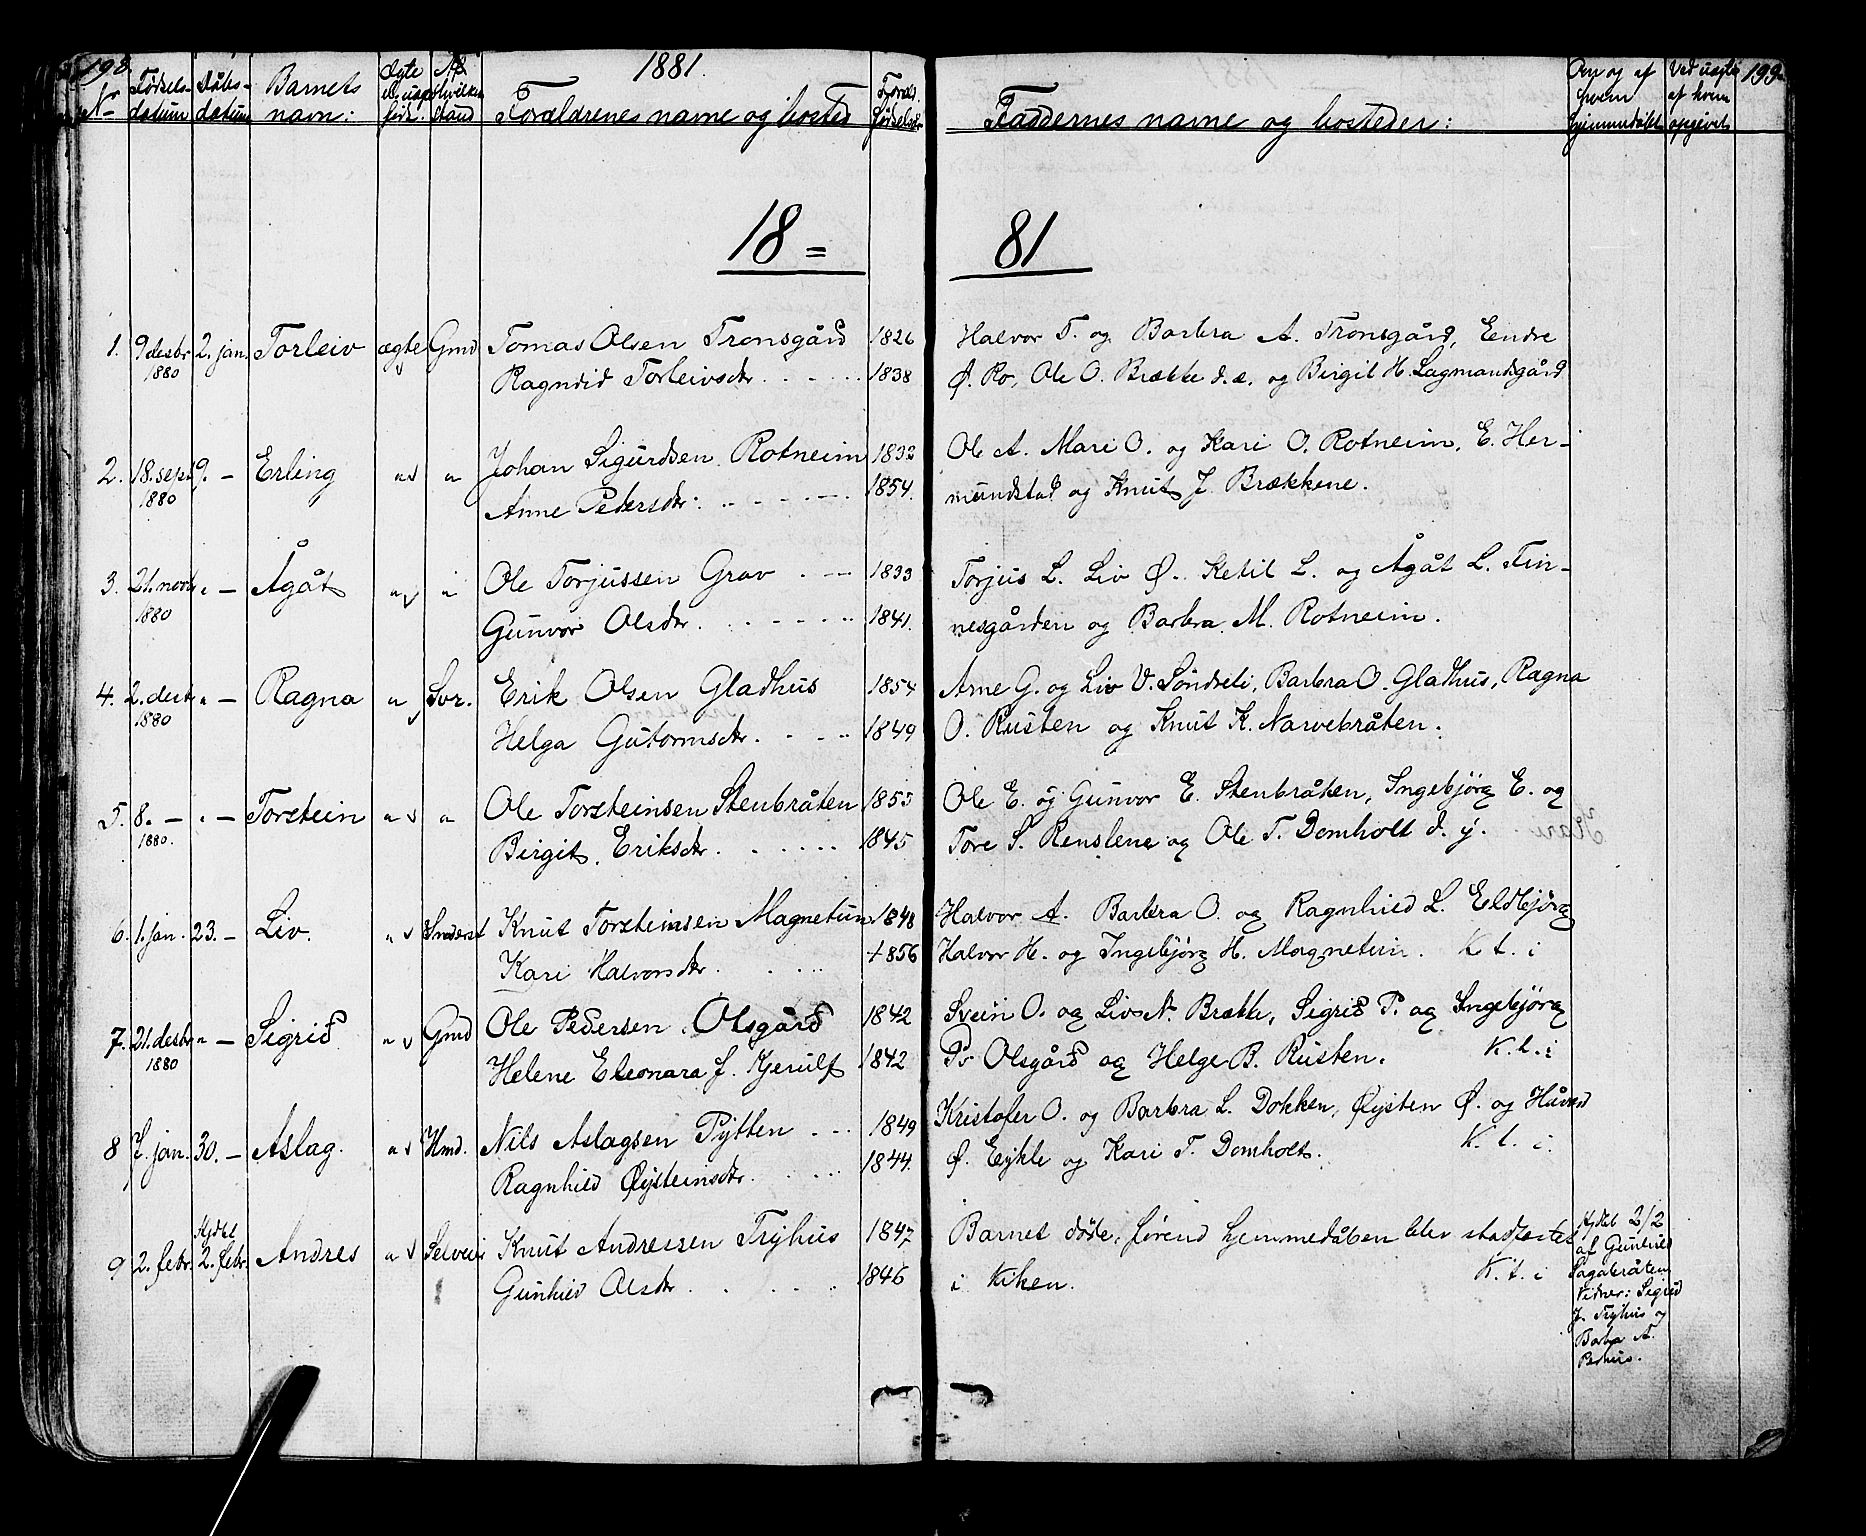 198.
1881.
199.
Nr
Fødsels-
datum
Dåbs-
datum
Barnets
navn:
Ægte
el. uægte
født.
Af
hvilken
stand
Forældrenes navne og bosted
Foræld.
fødselsår
Faddernes navne og bosteder:
Om og af
hvem
hjemmedøbt
Ved uægte
af hvem
opgivet
18 = 81
1. 9 desbr 2. jan. Torleiv ægte Gmd Tomas Olsen Tronsgård 1826 Halvor T. og Barbra A. Tronsgård, Eendre
1880 Ragndid Torleivsdtr. 1838 Ø. Ro, Ole O. Brække d.æ. og Birgit H. Lagmandsgård
2. 18. sept 9. - Erling " " Johan Sigurdsen Rotneim 1832 Ole A. Mari O. og Kari O. Rotneim, E. Her-
1880 Anne Petersdtr: 1854. mundstad og Knut J. Brækkene.
3. 21. novb " - Ågåt " " Ole Torjussen Grav 1833 Torjus L. Liv Ø. Ketil L. og Ågåt L. Fin-
1880 Gunvor Olsdtr. 1841. nesgården og Barbra M. Rotneim.
4. 2. desb " - Ragna " Svr. Erik Olsen Gladhus 1854 Arne G. og Liv V. Søndreli, Barbra O. Gladhus, Ragna
1880 Helga Gutormsdtr. 1849 O. Rusten og Knut K. Narvebråten.
5. 8. - " - Torstein " " Ole Torsteinsen Stenbråten 1853 Ole E. og Gunvor E. Stenbråten, Ingebjørg E. og
1880. Birgit Eriksdtr. 1845 Tore S. Renslene og Ole T. Domholt d. y.
6. 1. jan. 23. - Liv. " Knut Torsteinsen Magnetun 1848 Halvor A. Barbra O. og Ragnhild L. Eldbjørg
Kari Halvorsdtr. 1856 Halvor H. og Ingebjørg H. Magnetun. K. t. i
7. 21. desbr " - Sigrid " Gmd Ole Pedersen Olsgård 1842 Svein O. og Liv N. Brække, Sigrid P. og Ingebjørg
1880 Helene Eleonara J. Kjerulf 1842 P. Olsgård og Helge B. Rusten. K. t. i
8 7. jan. 30. - Aslag. " Hmd. Nils Aslagsen Pytten 1849 Kristofer O. og Barbra L. Dokken, Øysten Ø. og Håvard
Ragnhild Øysteinsdtr. 1844. Ø. Eykle og Kari T. Domholt. K. t. i.
9 2. febr. Hjdbt 2. febr. Andres " Selveier Knut Andressen Tryhus 1847 Barnet døde, førend hjemmedåben blev stadfæstet
Gunhild Olsdtr. 1846 i kirken. K. t. i
Hjdbt 2/2
af Gunhild
Sagabråten
Vidner: Sigrid
J. Tryhus og
Barbra A.